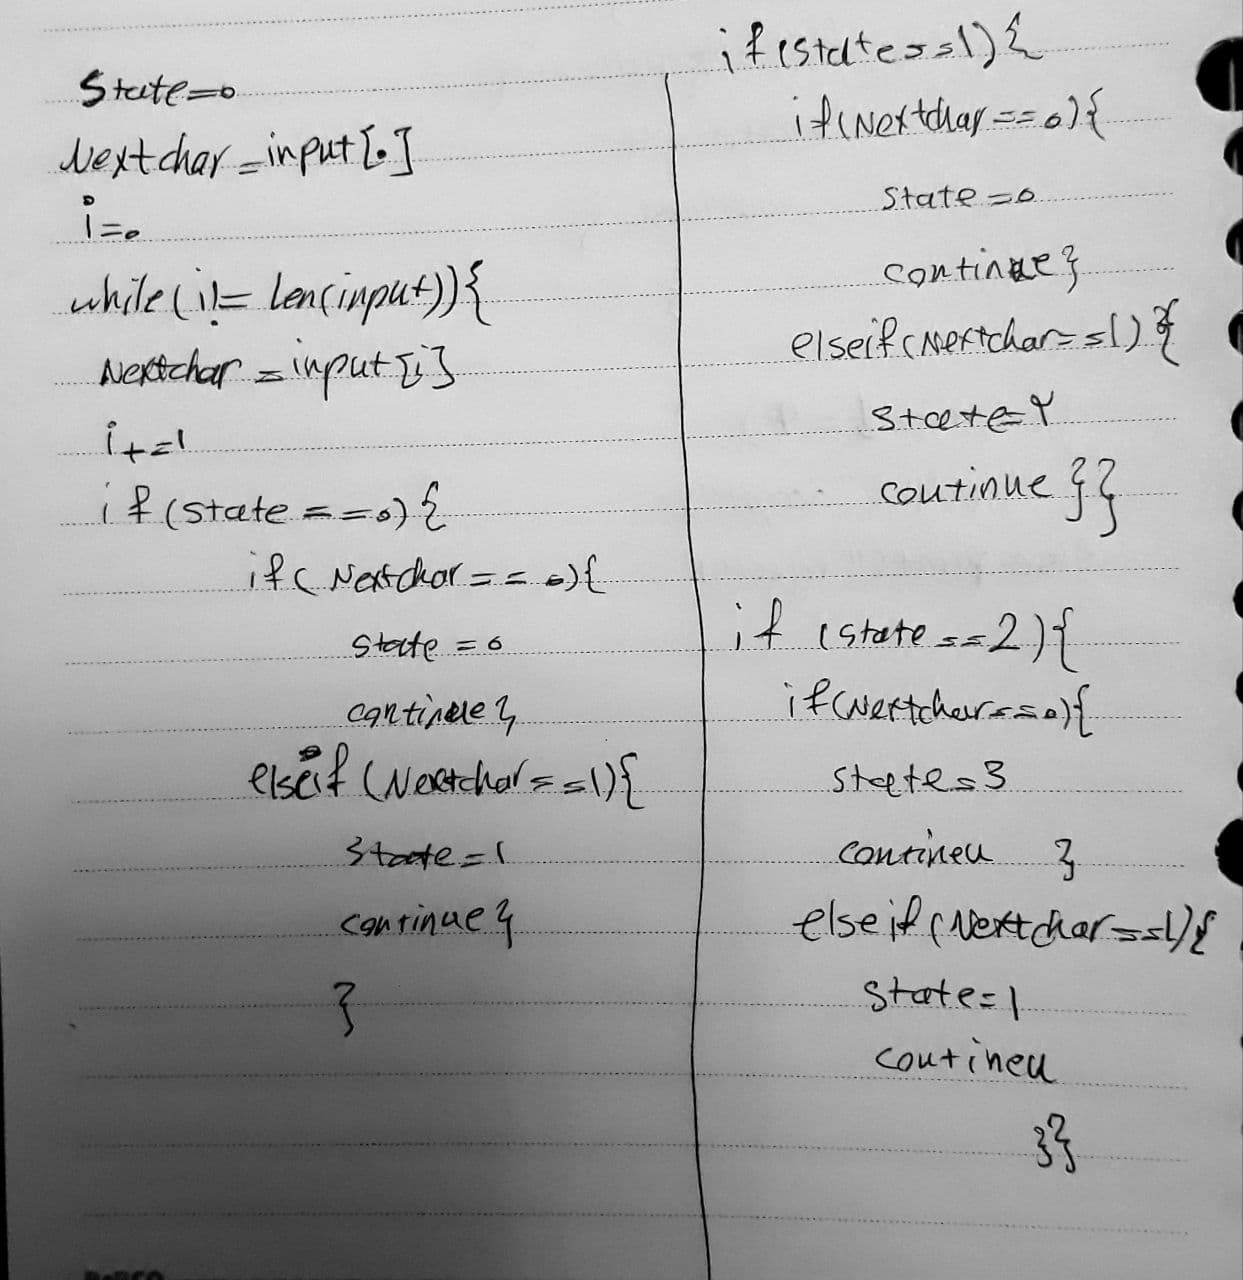 State=0
Nextchar=input[0]
i=0
while(i!= len(input)){
Nextchar=input[i]
i+=1
if(state==0){
if(Nextchar==0){
State=0
continue}
elseif(Nextchar==1){
State=1
continue}
}
if(state==1){
if(Nextchar==0){
State=0
continue}
elseif(Nextchar==1){
State=۲
continue}}
if(state==2){
if(Nextchar==0){
State=3
contineu }
elseif(Nextchar==1){
State=1
contineu
}}